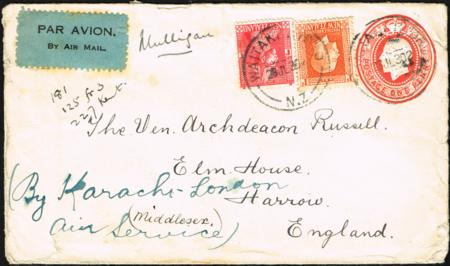 PAR AVION.
BY AIR MAIL.
Mulligan
181
NEW ZEALAND
N.Z.
POSTAGE ONE PENNY
The Ven. Archdeacon Russell.
Elm House.
Harrow.
(Middlesex)
England.
(By Karachi-London
Air Service)